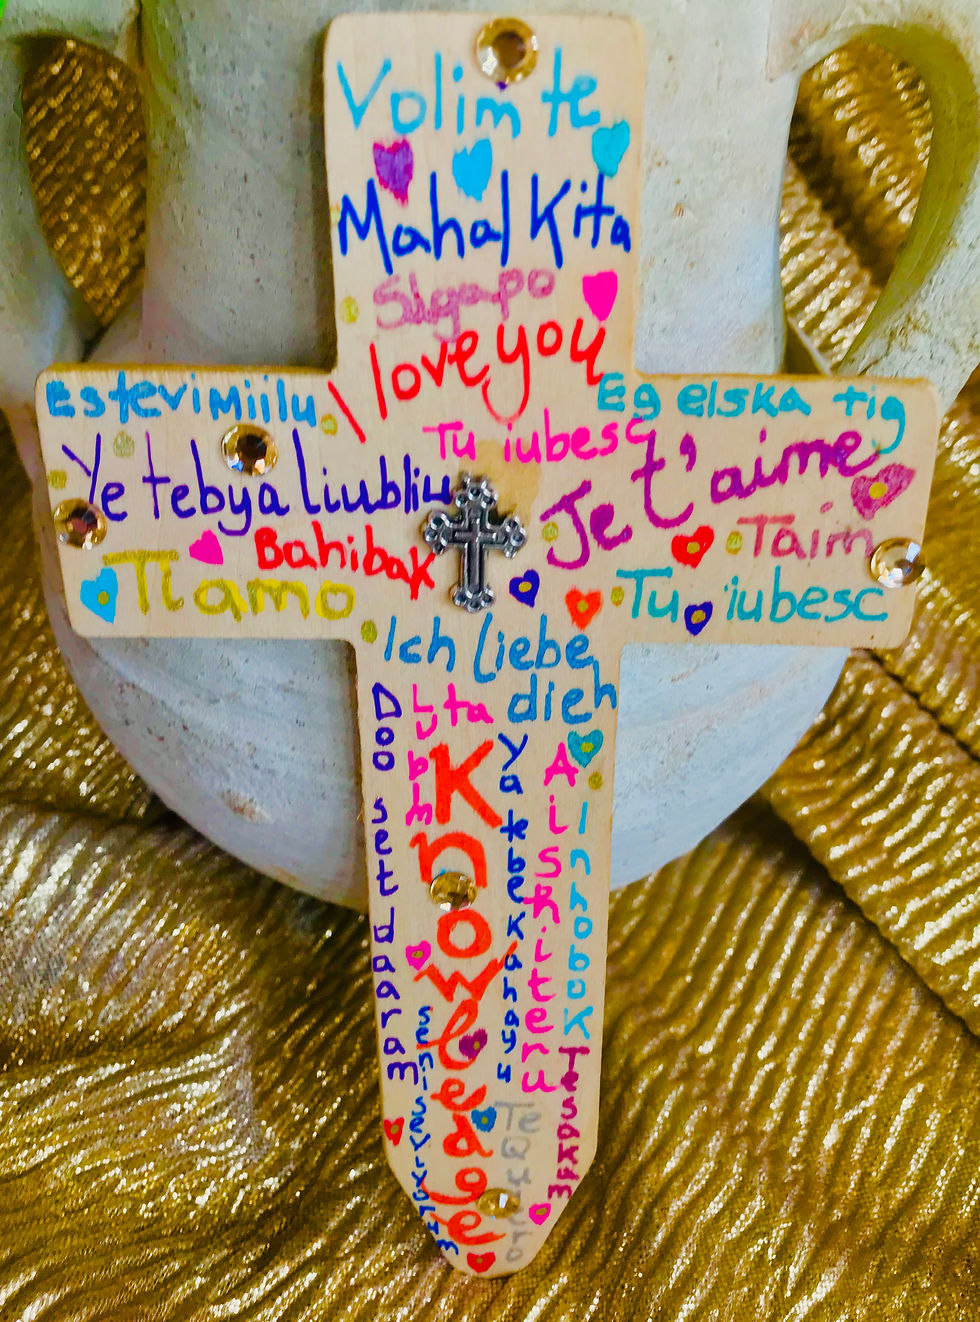 Volim te
Mahal Kita
Sigapo
I love you
Estevimiilu
Eg elska tig
Tu iubesc
Ye tebya liubliu
Je t'aime
Bahibak
Taim
Ti amo
Tu iubesc
Ich liebe
dich
Doo set daaram
Lubim ta
Knowleable
Ya kbe kahayu
Aishiteru
Inhobok
Te Quiero